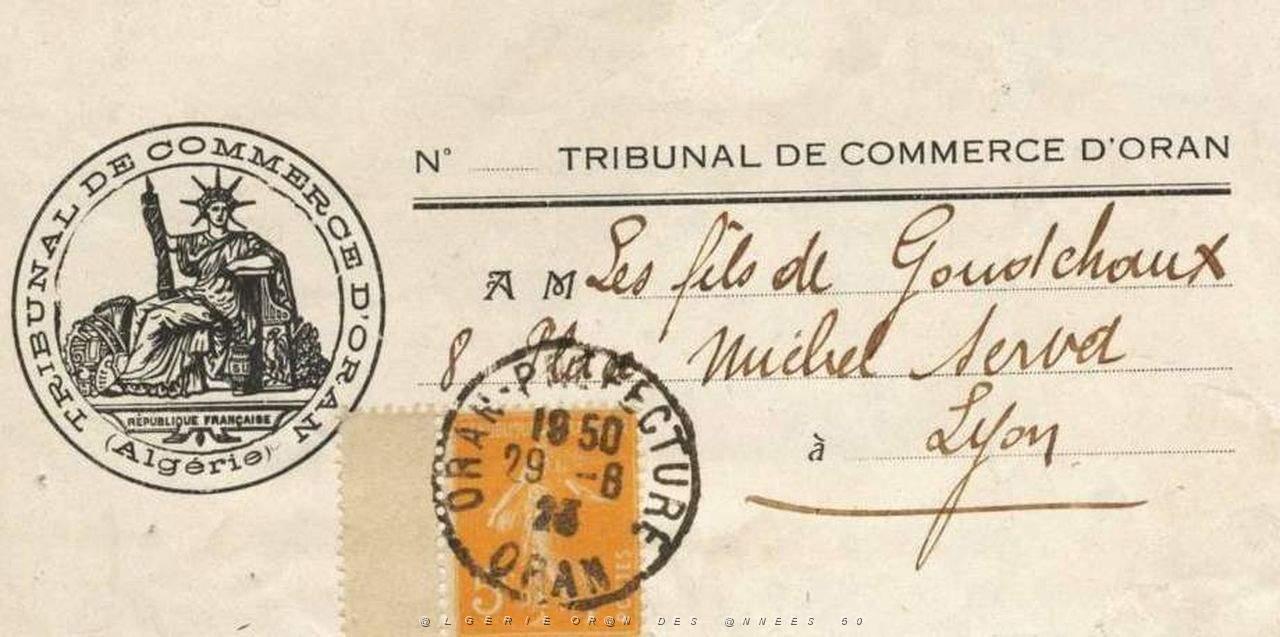 TRIBUNAL DE COMMERCE D'ORAN
(Algérie)
RÉPUBLIQUE FRANÇAISE
N° TRIBUNAL DE COMMERCE D'ORAN
A M Les fils de Goudchaux
8 Michel Servet
à Lyon
ORAN-PREFECTURE
19 50
29 -8
ORAN
5
@LGERIE OR@N DES @NNEES 50